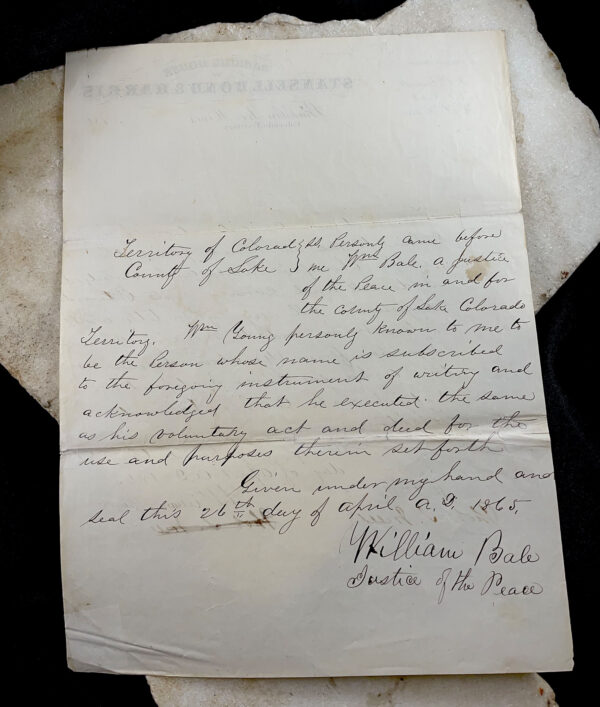 Territory of Colorad } ss. Personly came before
County of Lake } me Wm Bale. a Justice
of the Peace in and for
the county of Lake Colorado
Territory. Wm Young personly known to me to
be the Person whose name is subscribed
to the foregoing instrument of writing and
acknowledged that he executed the same
as his voluntary act and deed for the
use and purposes therein set forth
Given under my hand and
seal this 26th day of April A.D. 1865.
William Bale
Justice of the Peace
STANSELL, BOND & HARRIS